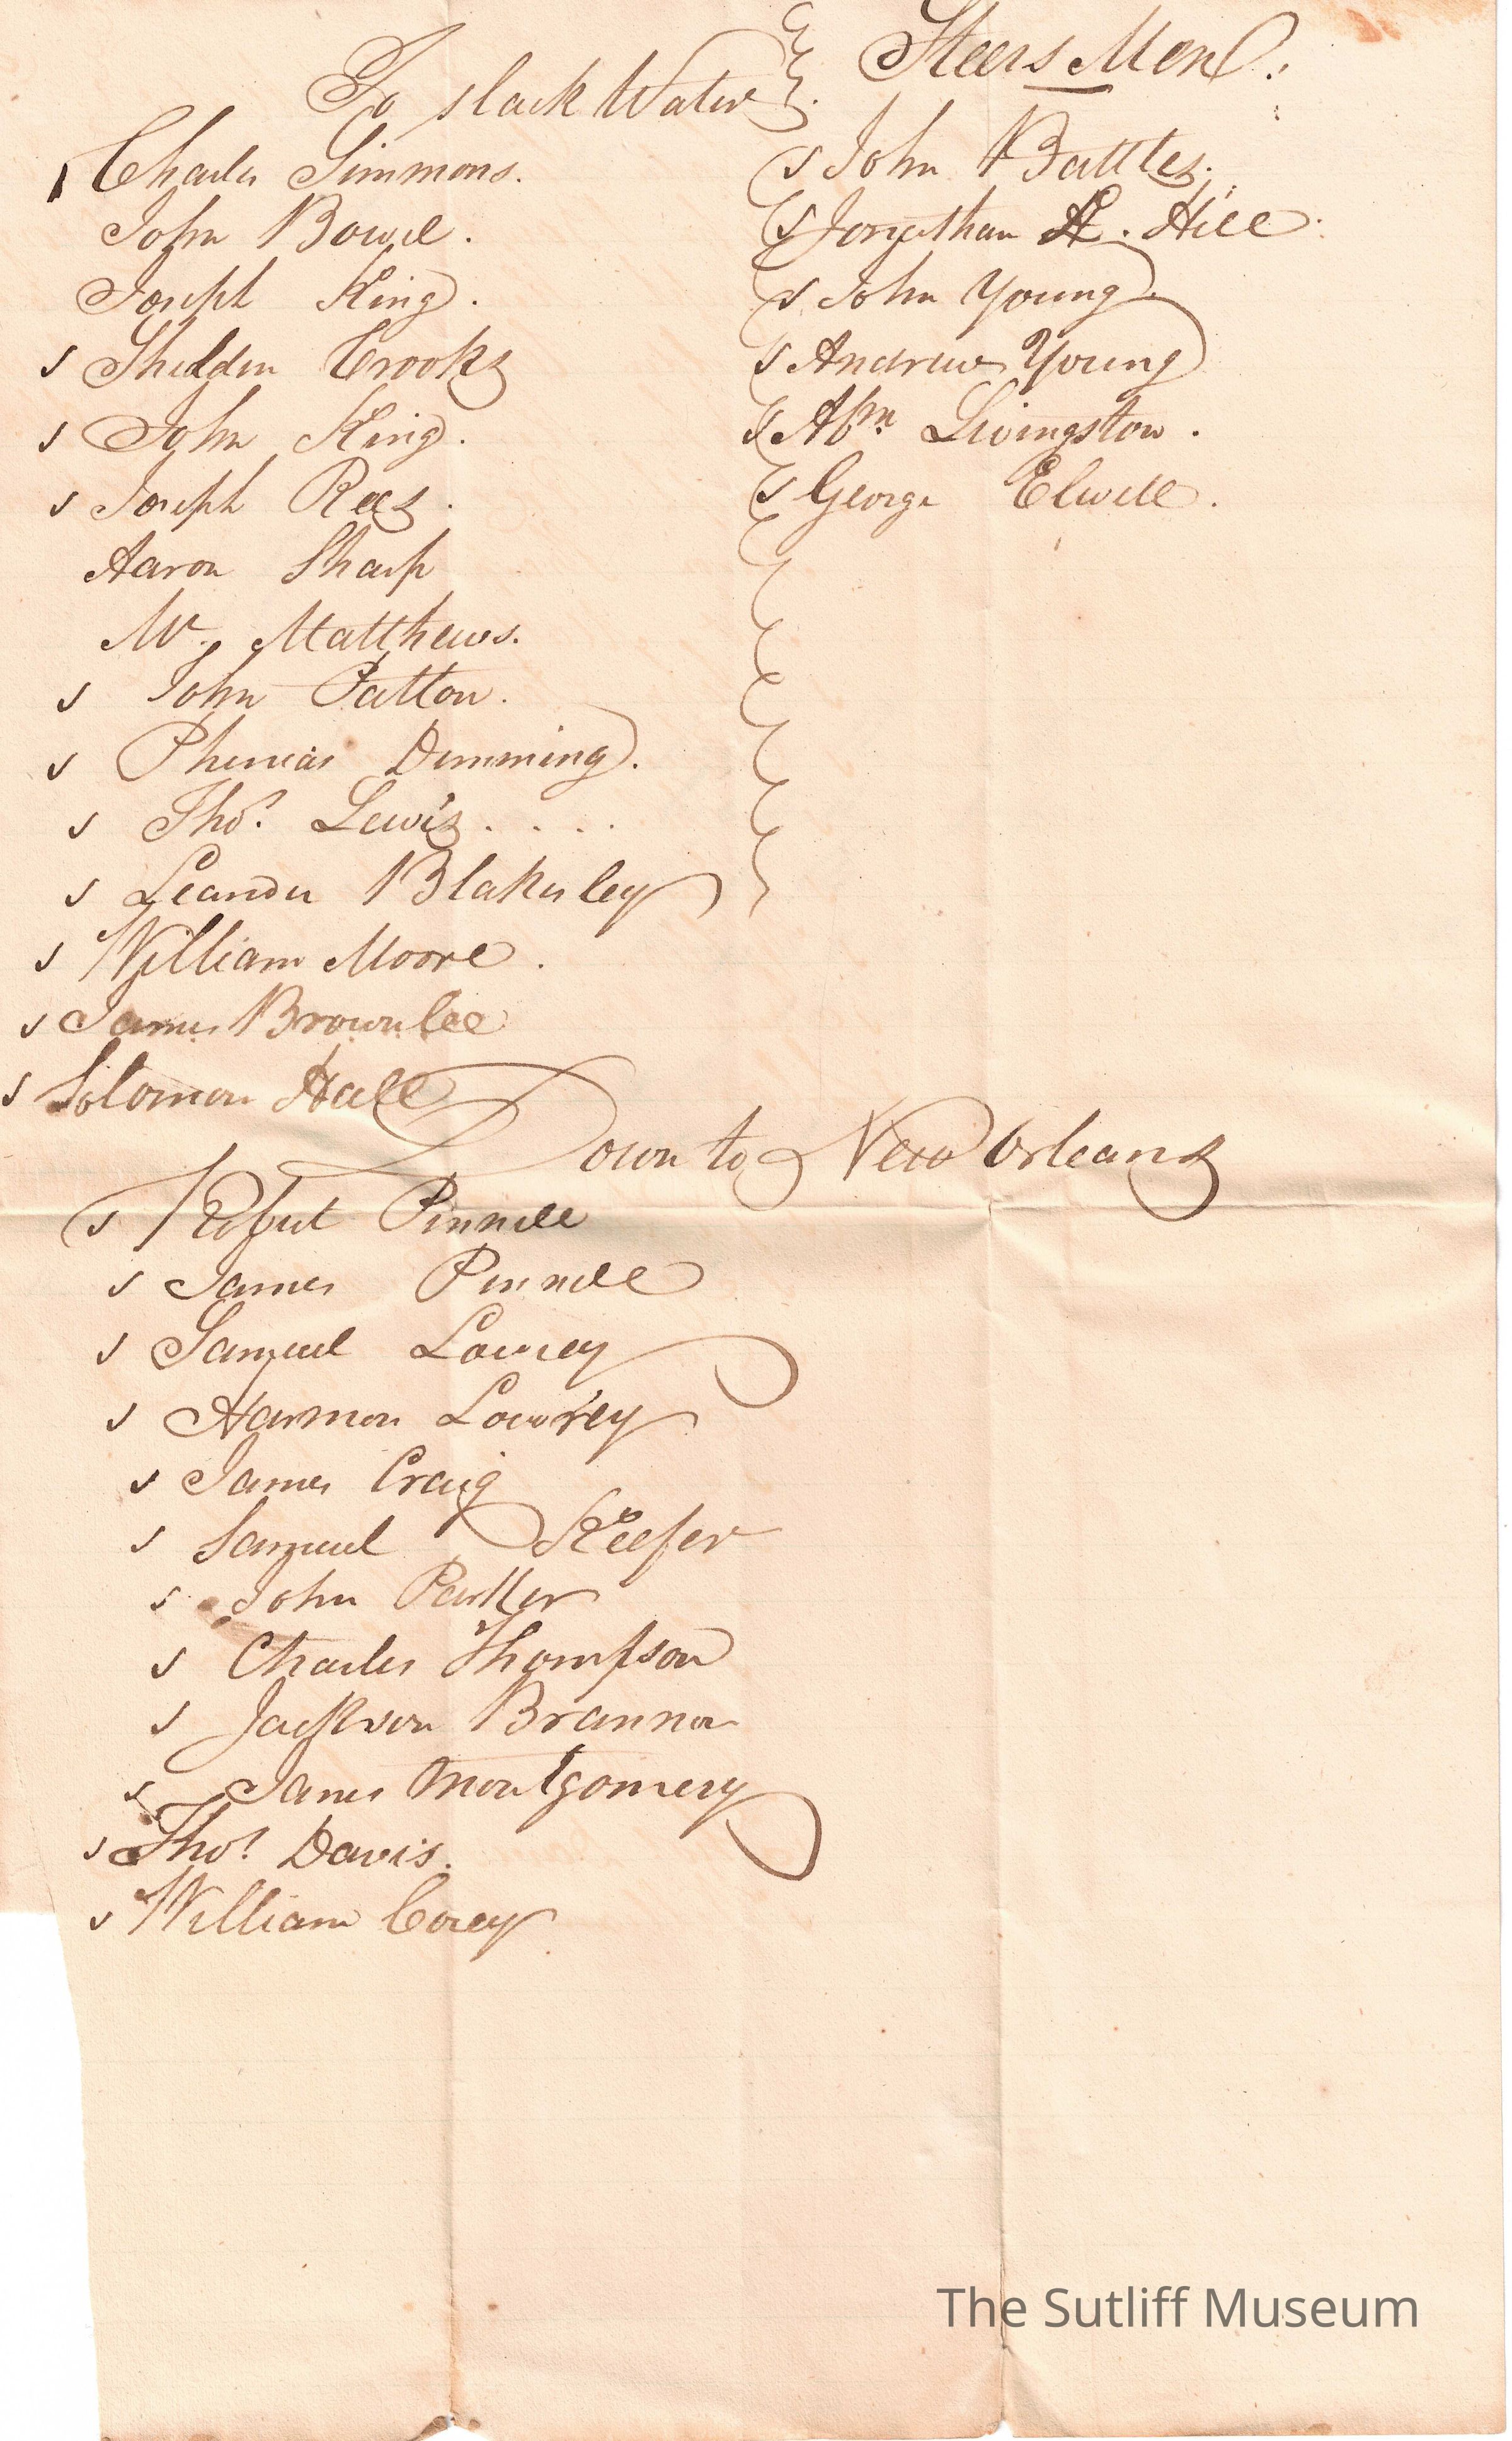 To slack Water
Charles Simmons.
John Bowel.
Joseph King.
s Sheldin Crooks
s John King.
s Joseph Rees.
Aaron Sharp
Mr. Matthews.
s John Patton.
s Phineas Demming.
s Thos. Lewis. . . .
s Leander Blakesley
s William Moore.
s James Brownlee
s Solomon Hall
Steers Men.
s John Battles.
s Jonathan A. Hill.
s John Young.
s Andrew Young
s Abm. Livingston.
s George Elwell.
Down to New Orleans
s Robert Pinnell
s James Pinnell
s Samuel Lowrey
s Harmon Lowrey
s James Craig
s Samuel Keefer
s John Parker
s Charles Thompson
s Jackson Brannon
s James Montgomery
s Thos. Davis.
s William Corey
The Sutliff Museum